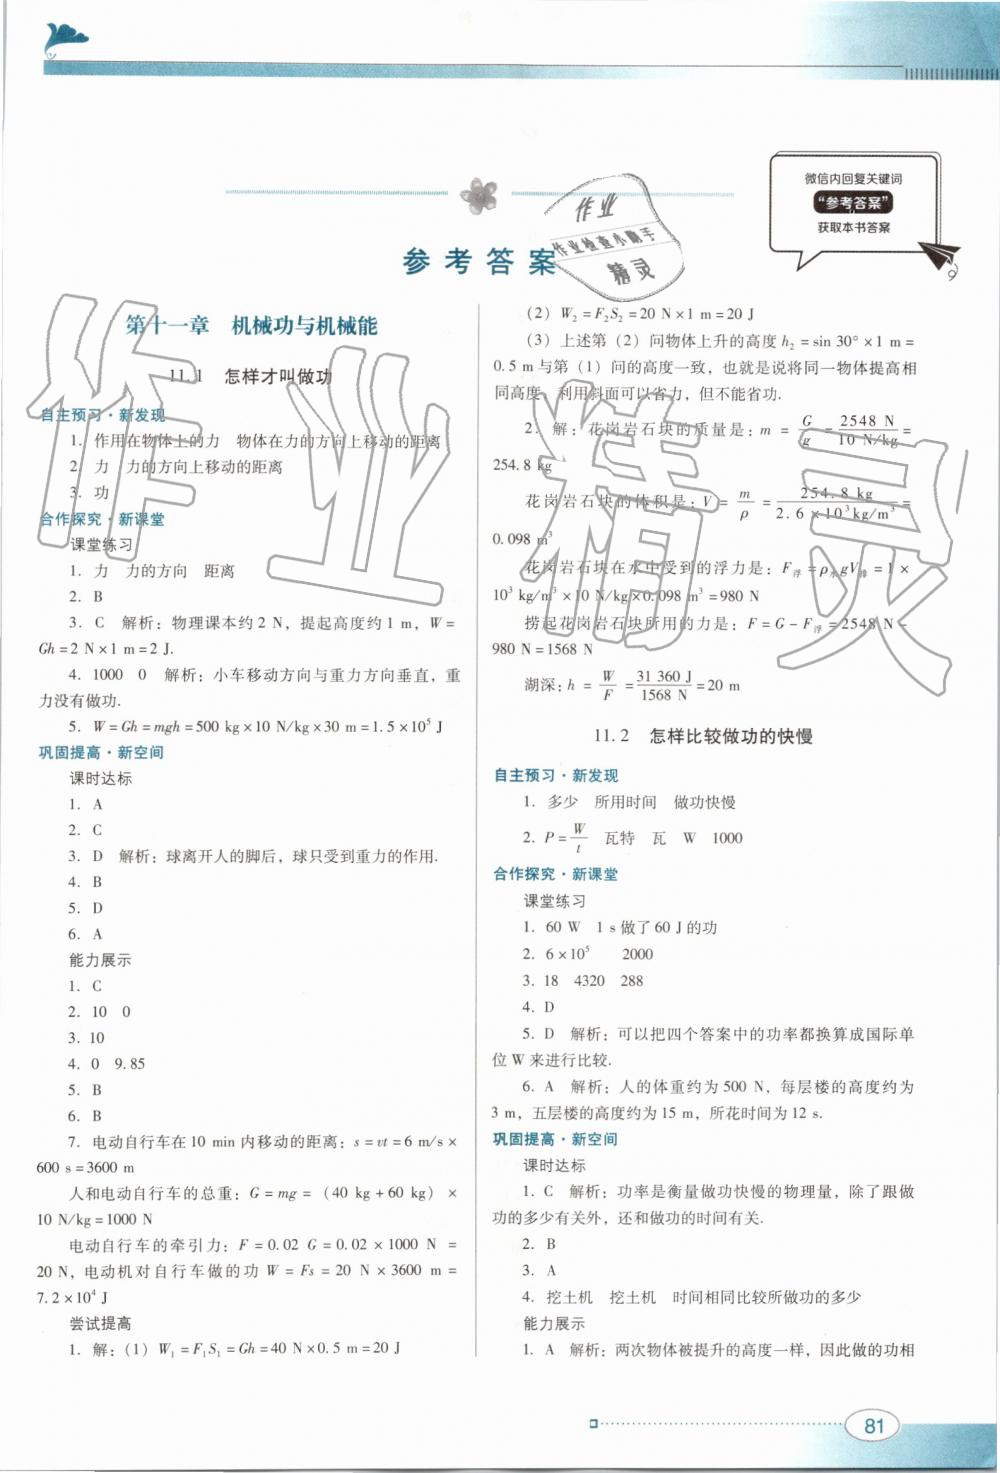 微信内回复关键词
“参考答案”
获取本书答案
作业
作业检查小助手
精灵
参考答案
第十一章 机械功与机械能
11.1 怎样才叫做功
自主预习·新发现
1. 作用在物体上的力 物体在力的方向上移动的距离
2. 力 力的方向上移动的距离
3. 功
合作探究·新课堂
课堂练习
1. 力 力的方向 距离
2. B
3. C 解析：物理课本约 2 N，提起高度约 1 m，W=
Gh=2 N×1 m=2 J.
4. 1000 0 解析：小车移动方向与重力方向垂直，重
力没有做功.
5. W=Gh=mgh=500 kg×10 N/kg×30 m=1.5×10⁵ J
巩固提高·新空间
课时达标
1. A
2. C
3. D 解析：球离开人的脚后，球只受到重力的作用.
4. B
5. D
6. A
能力展示
1. C
2. 10 0
3. 10
4. 0 9.85
5. B
6. B
7. 电动自行车在 10 min 内移动的距离：s=vt=6 m/s×
600 s=3600 m
人和电动自行车的总重：G=mg=（40 kg+60 kg）×
10 N/kg=1000 N
电动自行车的牵引力：F=0.02 G=0.02×1000 N=
20 N，电动机对自行车做的功 W=Fs=20 N×3600 m=
7.2×10⁴ J
尝试提高
1. 解：（1）W₁=F₁S₁=Gh=40 N×0.5 m=20 J
（2）W₂=F₂S₂=20 N×1 m=20 J
（3）上述第（2）问物体上升的高度 h₂=sin 30°×1 m=
0.5 m 与第（1）问的高度一致，也就是说将同一物体提高相
同高度，利用斜面可以省力，但不能省功.
2. 解：花岗岩石块的质量是：m=G/g=2548 N/10 N/kg=
254.8 kg
花岗岩石块的体积是：V=m/ρ=254.8 kg/2.6×10³kg/m³=
0.098 m³
花岗岩石块在水中受到的浮力是：F浮=ρ水gV排=1×
10³ kg/m³×10 N/kg×0.098 m³=980 N
捞起花岗岩石块所用的力是：F=G-F浮=2548 N-
980 N=1568 N
湖深：h=W/F=31 360 J/1568 N=20 m
11.2 怎样比较做功的快慢
自主预习·新发现
1. 多少 所用时间 做功快慢
2. P=W/t 瓦特 瓦 W 1000
合作探究·新课堂
课堂练习
1. 60 W 1 s 做了 60 J 的功
2. 6×10⁵ 2000
3. 18 4320 288
4. D
5. D 解析：可以把四个答案中的功率都换算成国际单
位 W 来进行比较.
6. A 解析：人的体重约为 500 N，每层楼的高度约为
3 m，五层楼的高度约为 15 m，所花时间为 12 s.
巩固提高·新空间
课时达标
1. C 解析：功率是衡量做功快慢的物理量，除了跟做
功的多少有关外，还和做功的时间有关.
2. B
3. A
4. 挖土机 挖土机 时间相同比较所做功的多少
能力展示
1. A 解析：两次物体被提升的高度一样，因此做的功相
81
作业精灵